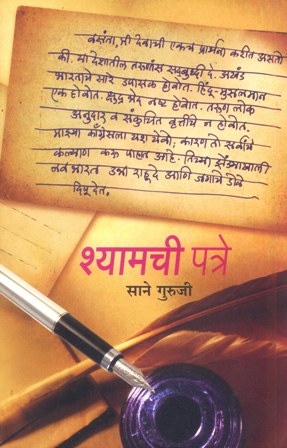 वसंता, मी देवाची एकच प्रार्थना करीत असतो
की, या देशातील तरुणांस सद्बुद्धी दे. अखंड
भारताचे सारे उपासक होवोत. हिंदू-मुसलमान
एक होवोत. क्षुद्र भेद नष्ट होवोत. तरुण लोक
अनुदार व संकुचित वृत्तीचे न होवोत.
माझ्या काँग्रेसला यश येवो; कारण ती सर्वांचे
कल्याण करू पाहत आहे. तिच्या झेंड्याखाली
नवभारत उभा राहू दे आणि जगाचे डोळे
दिपू देत.
श्यामची पत्रे
साने गुरुजी